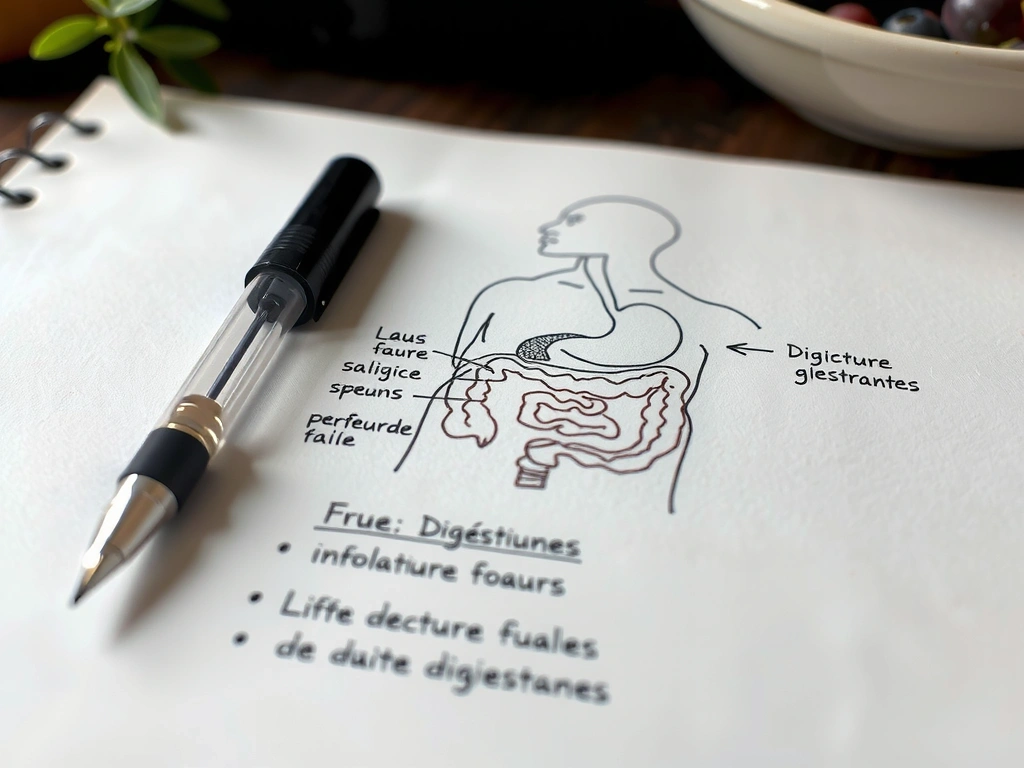 Laus
faure
saligice
speuns
perfeurde
faile
Digicture
glestrantes
Frue: Digéstiunes
• infolatiure foaurs
• Liffe decture fuales
• de duite digiestanes